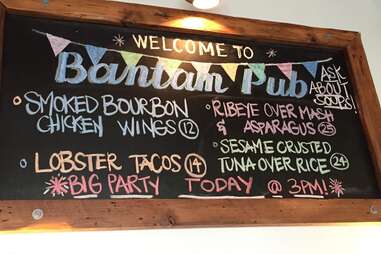 WELCOME TO
Bantam Pub
ASK
ABOUT
SOUPS!
SMOKED BOURBON
CHICKEN WINGS 12
LOBSTER TACOS 14
RIBEYE OVER MASH
& ASPARAGUS 25
SESAME CRUSTED
TUNA OVER RICE 24
BIG PARTY TODAY @ 3PM!